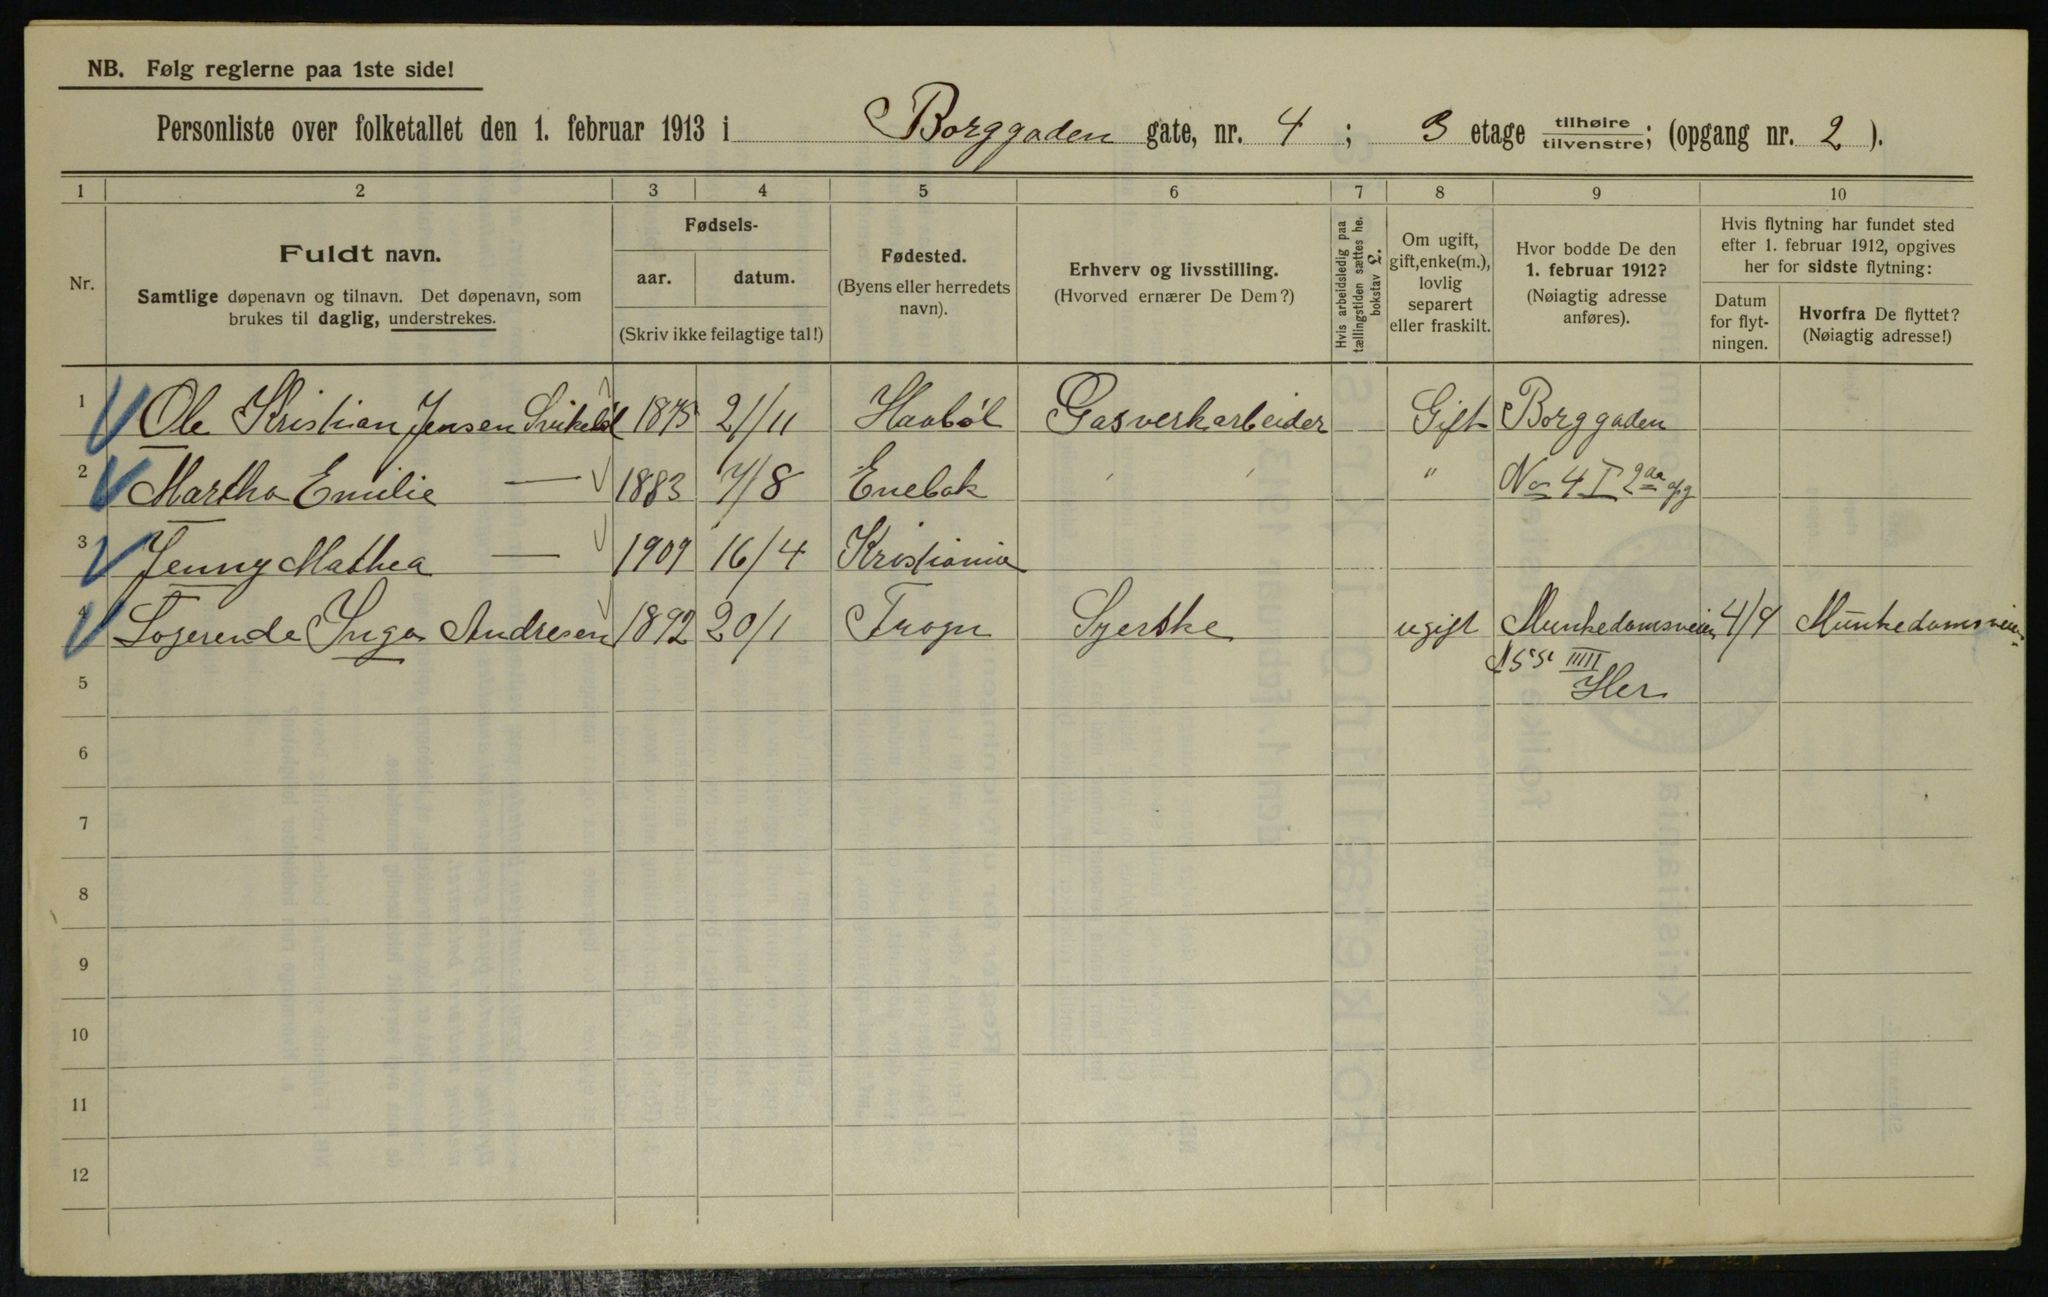 NB. Følg reglerne paa 1ste side!
Personliste over folketallet den 1. februar 1913 i Borggaden gate, nr. 4 ; 3 etage tilhøire/tilvenstre; (opgang nr. 2 ).
1 2 3 4 5 6 7 8 9 10
Nr.
Fuldt navn.
Samtlige døpenavn og tilnavn. Det døpenavn, som
brukes til daglig, understrekes.
Fødsels-
aar. datum.
(Skriv ikke feilagtige tal!)
Fødested.
(Byens eller herredets
navn).
Erhverv og livsstilling.
(Hvorved ernærer De Dem?)
Hvis arbeidsledig paa
tællingstiden sættes he.
bokstav L.
Om ugift,
gift, enke(m.),
lovlig
separert
eller fraskilt.
Hvor bodde De den
1. februar 1912?
(Nøiagtig adresse
anføres).
Hvis flytning har fundet sted
efter 1. februar 1912, opgives
her for sidste flytning:
Datum
for flyt-
ningen.
Hvorfra De flyttet?
(Nøiagtig adresse!)
1 Ole Kristian Jensen 1875 21/11 Haabøl Gasverkarbeider Gift Borggaden
2 Martha Emilie — 1883 7/8 Enebak " No 4 I 2
3 Jenny Mathea — 1909 16/4 Kristiania
4 Logerende Inga Andresen 1892 20/1 Frogn Syerske ugift Munkedamsveien 4/9 Munkedamsveien
Her
5
6
7
8
9
10
11
12